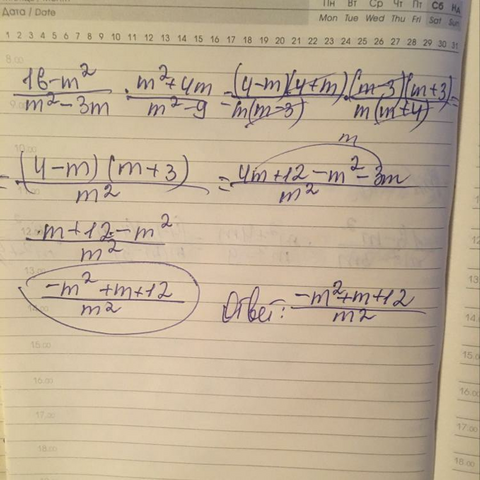 Дата / Date
Пн Вт Ср Чт Пт Сб Нд
Mon Tue Wed Thu Fri Sat Sun
1 2 3 4 5 6 7 8 9 10 11 12 13 14 15 16 17 18 19 20 21 22 23 24 25 26 27 28 29 30 31
8.00
(16-m²)/(m²-3m) : (m²+4m)/(m²-9) = (4-m)(4+m)/(m(m-3)) · (m-3)(m+3)/(m(m+4)) =
9.00
10.00
m
= (4-m)(m+3)/m² = (4m+12-m²-3m)/m²
(m+12-m²)/m²
(-m²+m+12)/m² Ответ: (-m²+m+12)/m²
15.00
16.00
17.00
18.00